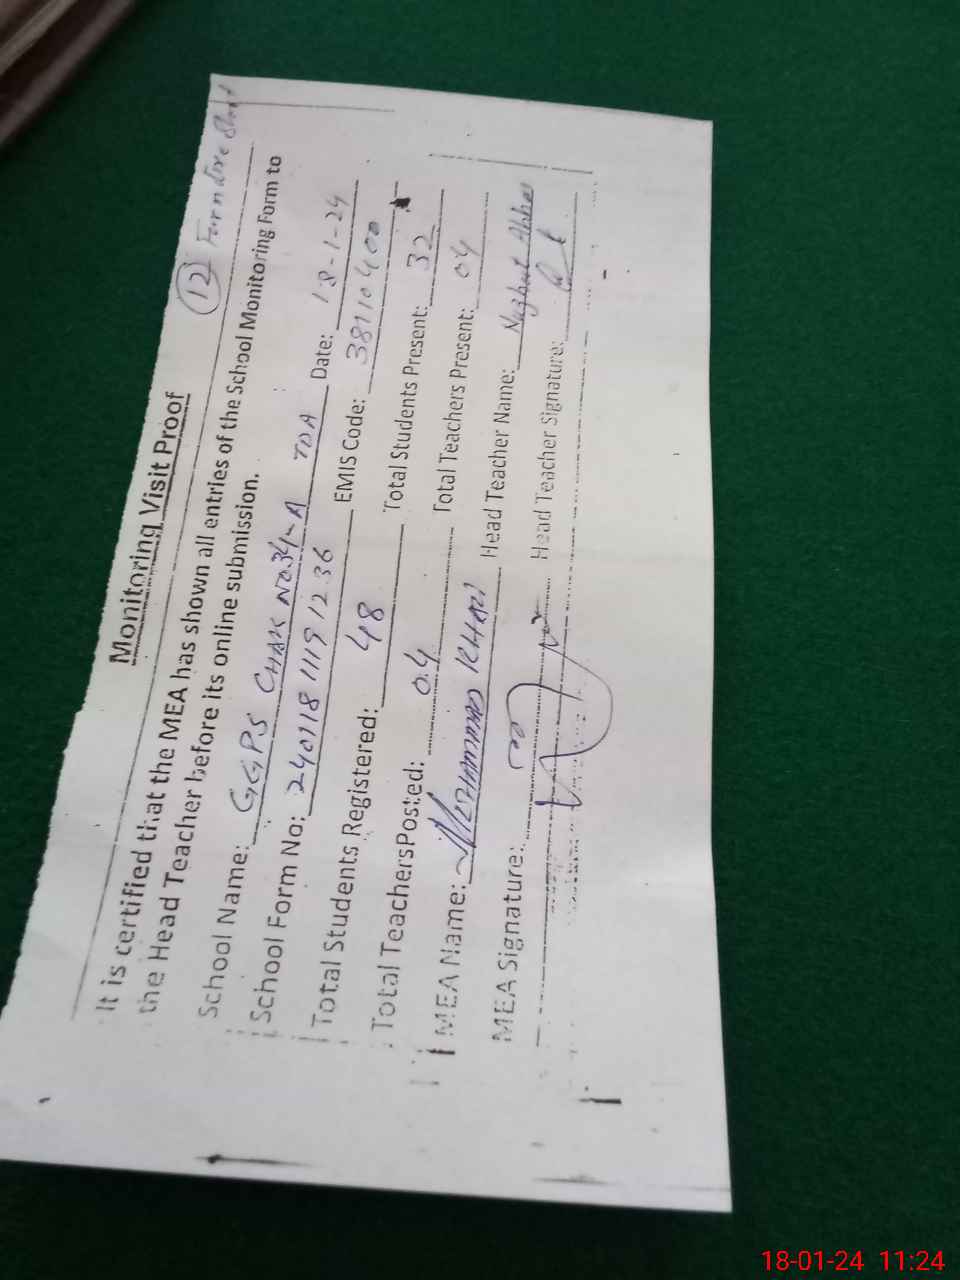 (12) Furniture Short
Monitoring Visit Proof
It is certified that the MEA has shown all entries of the School Monitoring Form to
the Head Teacher before its online submission.
School Name: GGPS CHAK NO.34-A TDA Date: 18-1-24
School Form No: 240118 1119 1236 EMIS Code: 38110400
Total Students Registered: 48 Total Students Present: 32
Total TeachersPosted: 04 Total Teachers Present: 04
MEA Name: MUHAMMAD KHAN Head Teacher Name: Nuzhat Abbas
MEA Signature: Head Teacher Signature:
18-01-24 11:24